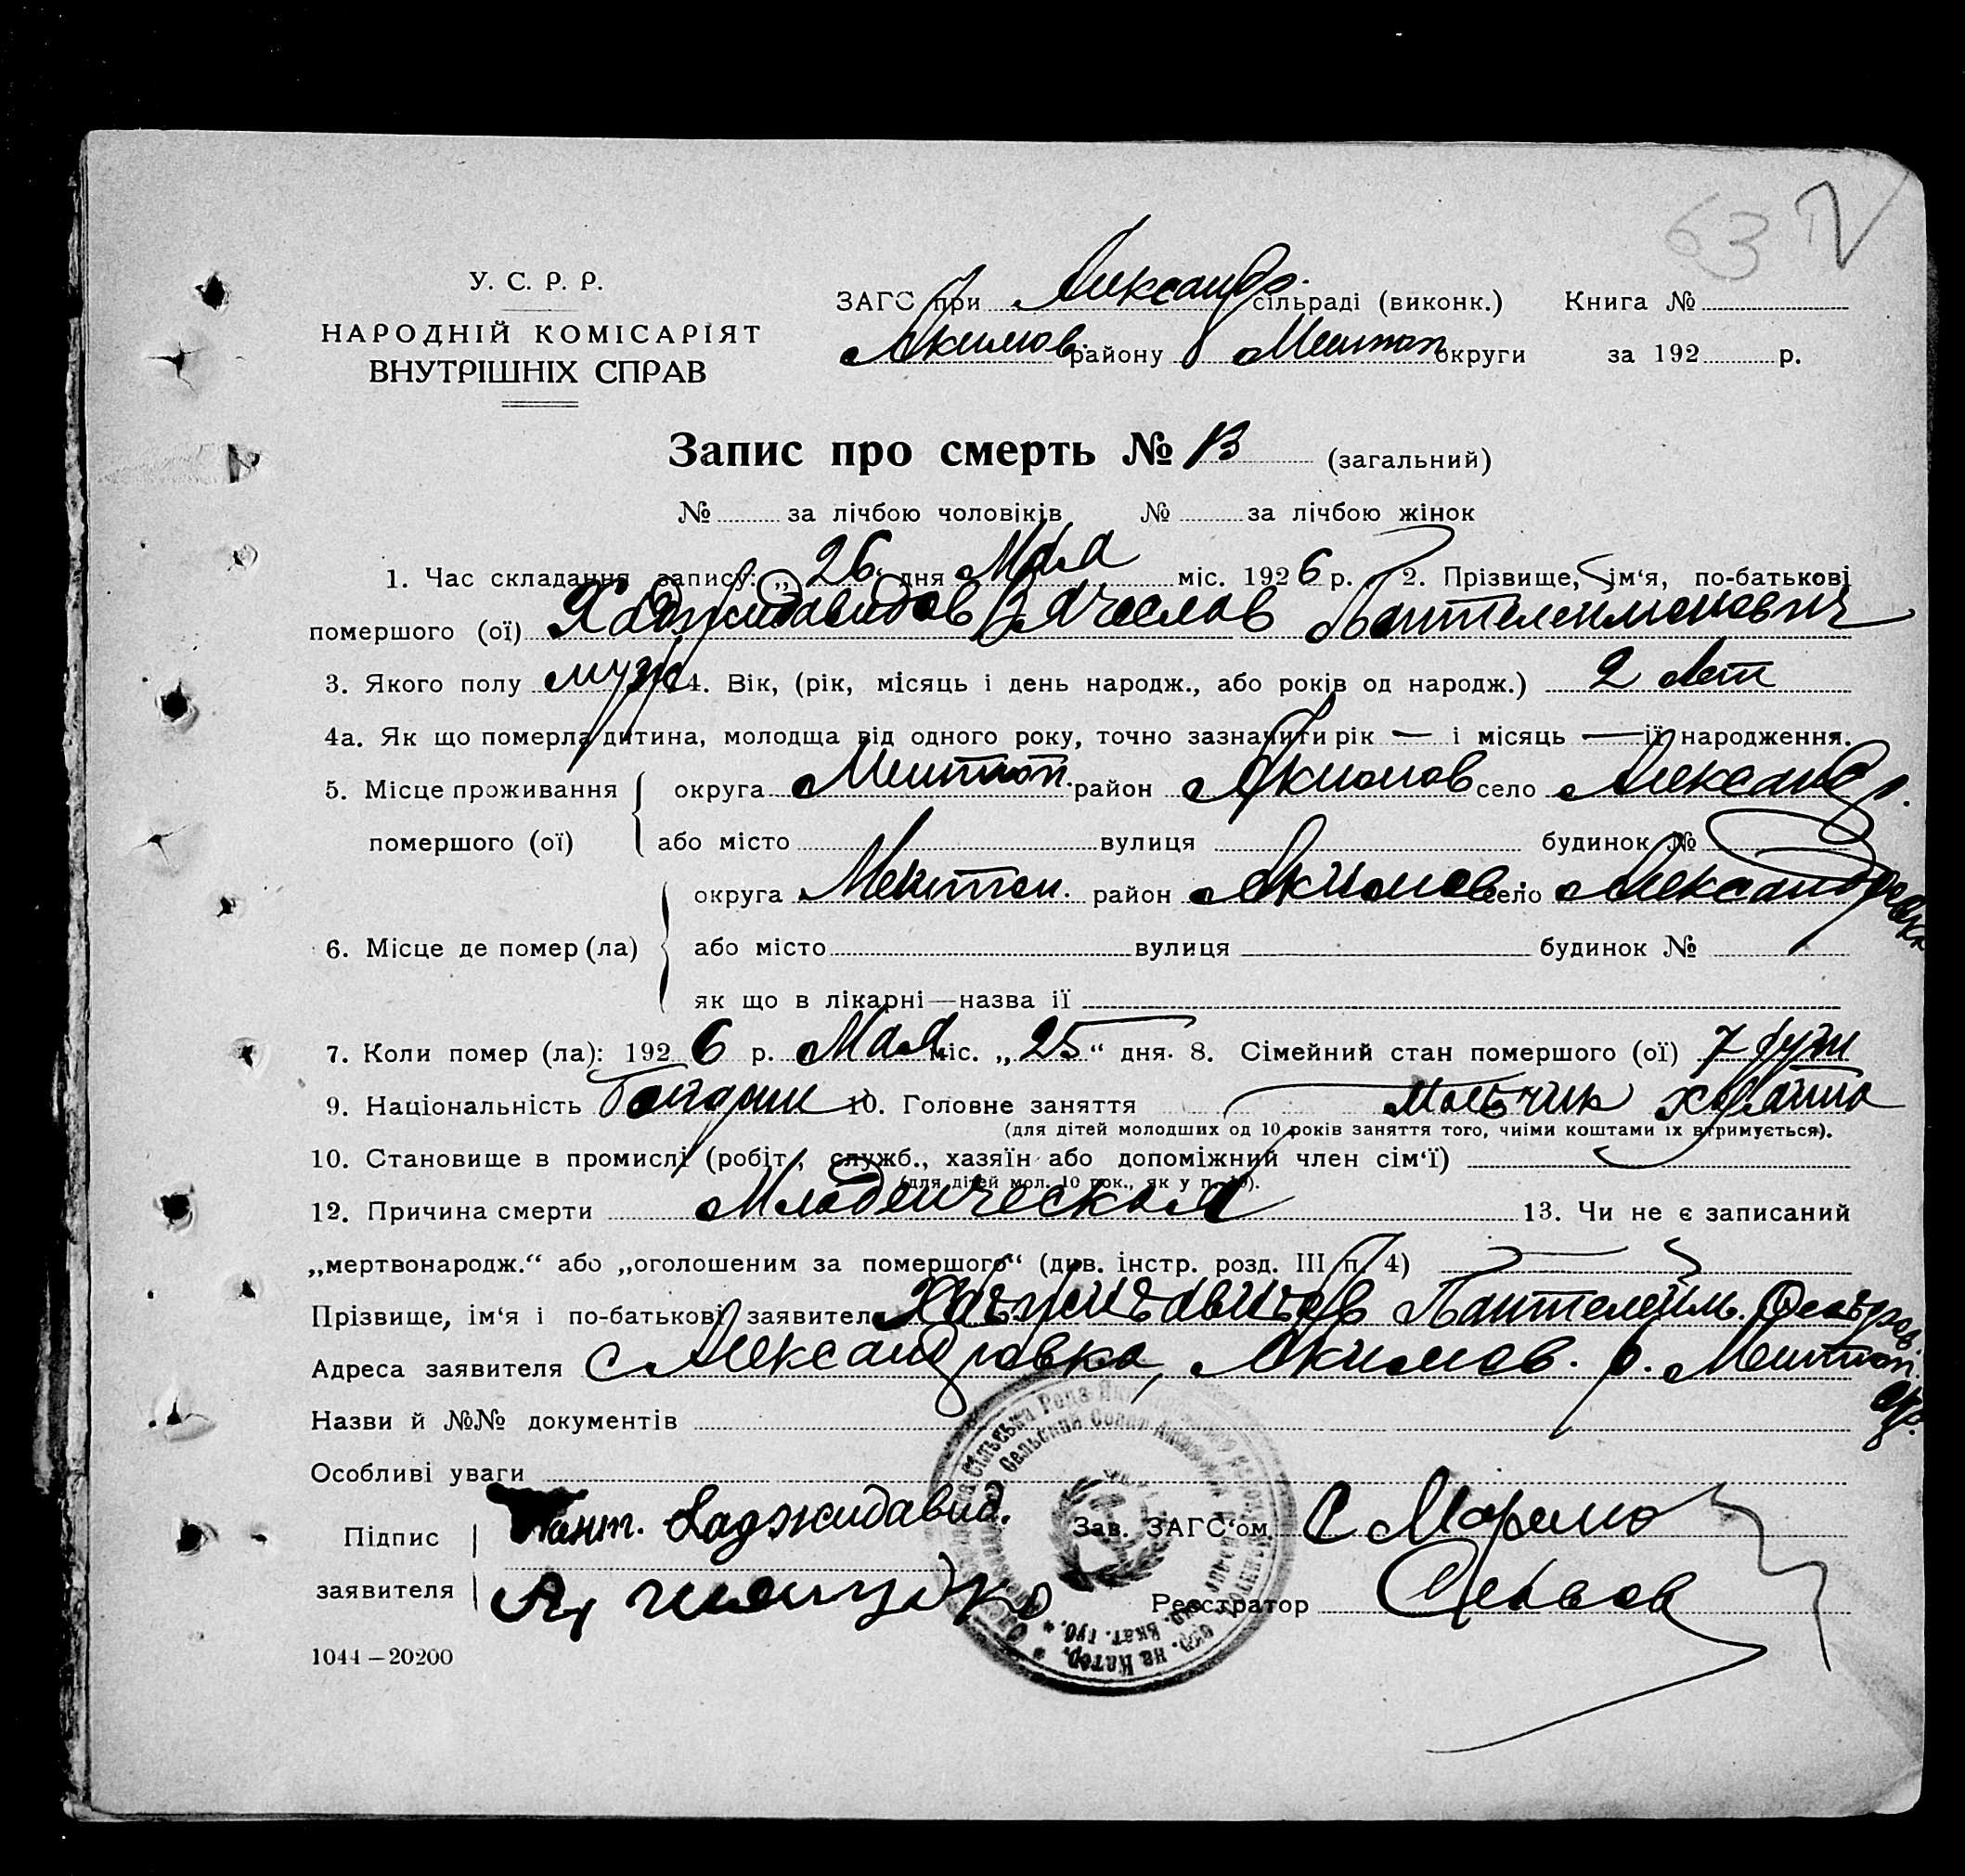 63
У. С. Р. Р.
НАРОДНІЙ КОМІСАРІЯТ
ВНУТРІШНІХ СПРАВ
ЗАГС при Александр. сільраді (виконк.) Книга №
Акимов. району Мелитоп округи за 192 р.
Запис про смерть № 13 (загальний)
№ за лічбою чоловіків № за лічбою жінок
1. Час складання запису: „26“ дня Мая міс. 1926 р. 2. Прізвище, ім‘я, по-батькові
помершого (ої) Хаджидавидов Вячеслав Пантелеймонович
3. Якого полу муж 4. Вік, (рік, місяць і день народж., або років од народж.) 2 лет
4а. Як що померла дитина, молодща від одного року, точно зазначити рік — і місяць — її народження.
5. Місце проживання округа Мелитоп. район Акимов село Александр.
помершого (ої) або місто вулиця будинок №
округа Мелитоп. район Акимов. село Александровка
6. Місце де помер (ла) або місто вулиця будинок №
як що в лікарні—назва ії
7. Коли помер (ла): 1926 р. Мая міс. „25“ дня. 8. Сімейний стан помершого (ої) 7 душ
9. Національність 10. Головне заняття мальчик
(для дітей молодших од 10 років заняття того, чиіми коштами іх втримується).
10. Становище в промислі (робіт., служб., хазяїн або допоміжний член сім‘ї)
(для дітей мол. 10 рок., як у п. 10).
12. Причина смерти Младенческая 13. Чи не є записаний
„мертвонародж.“ або „оголошеним за помершого“ (див. інстр. розд. III п. 4)
Прізвище, ім‘я і по-батькові заявителя Хаджидавидов Пантелеим.
Адреса заявителя с Александровка, Акимов. р. Мелитоп.
Назви й №№ документів
Особливі уваги
Підпис Пант. Хаджидавид. Зав. ЗАГС‘ом
заявителя Реєстратор
1044—20200